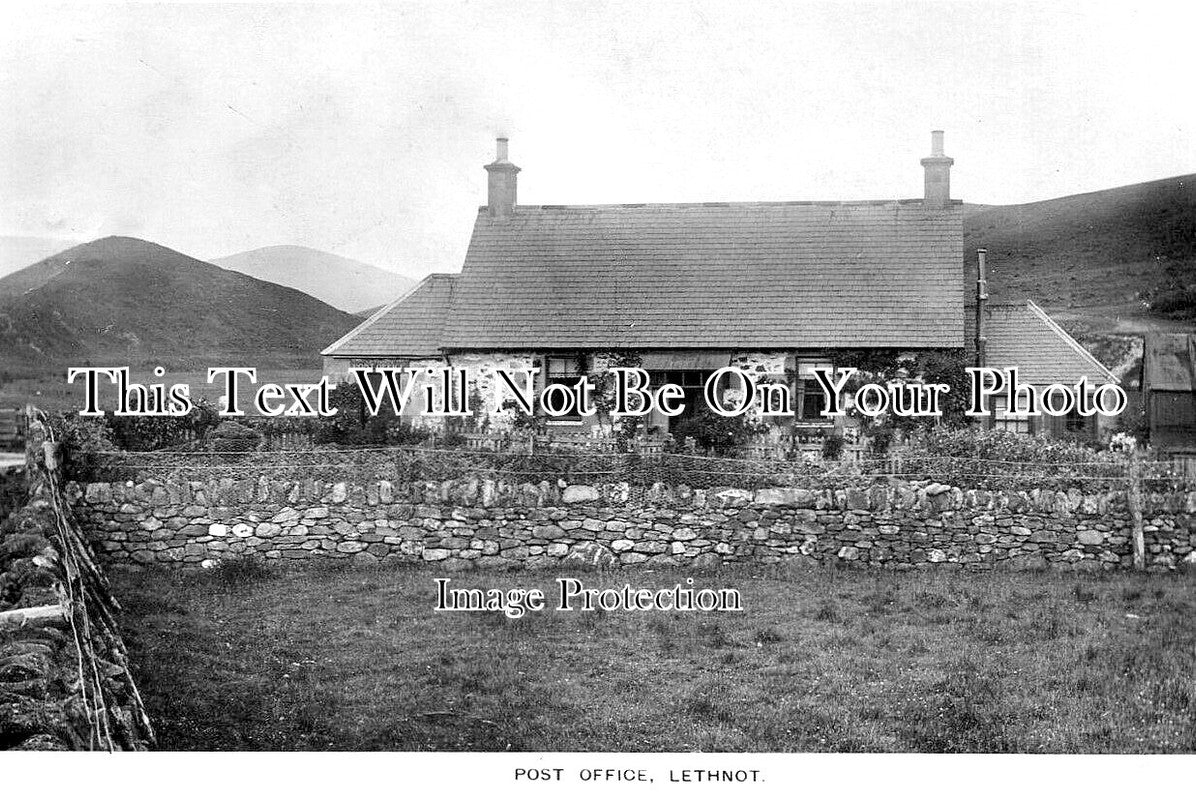 This Text Will Not Be On Your Photo
Image Protection
POST OFFICE, LETHNOT.